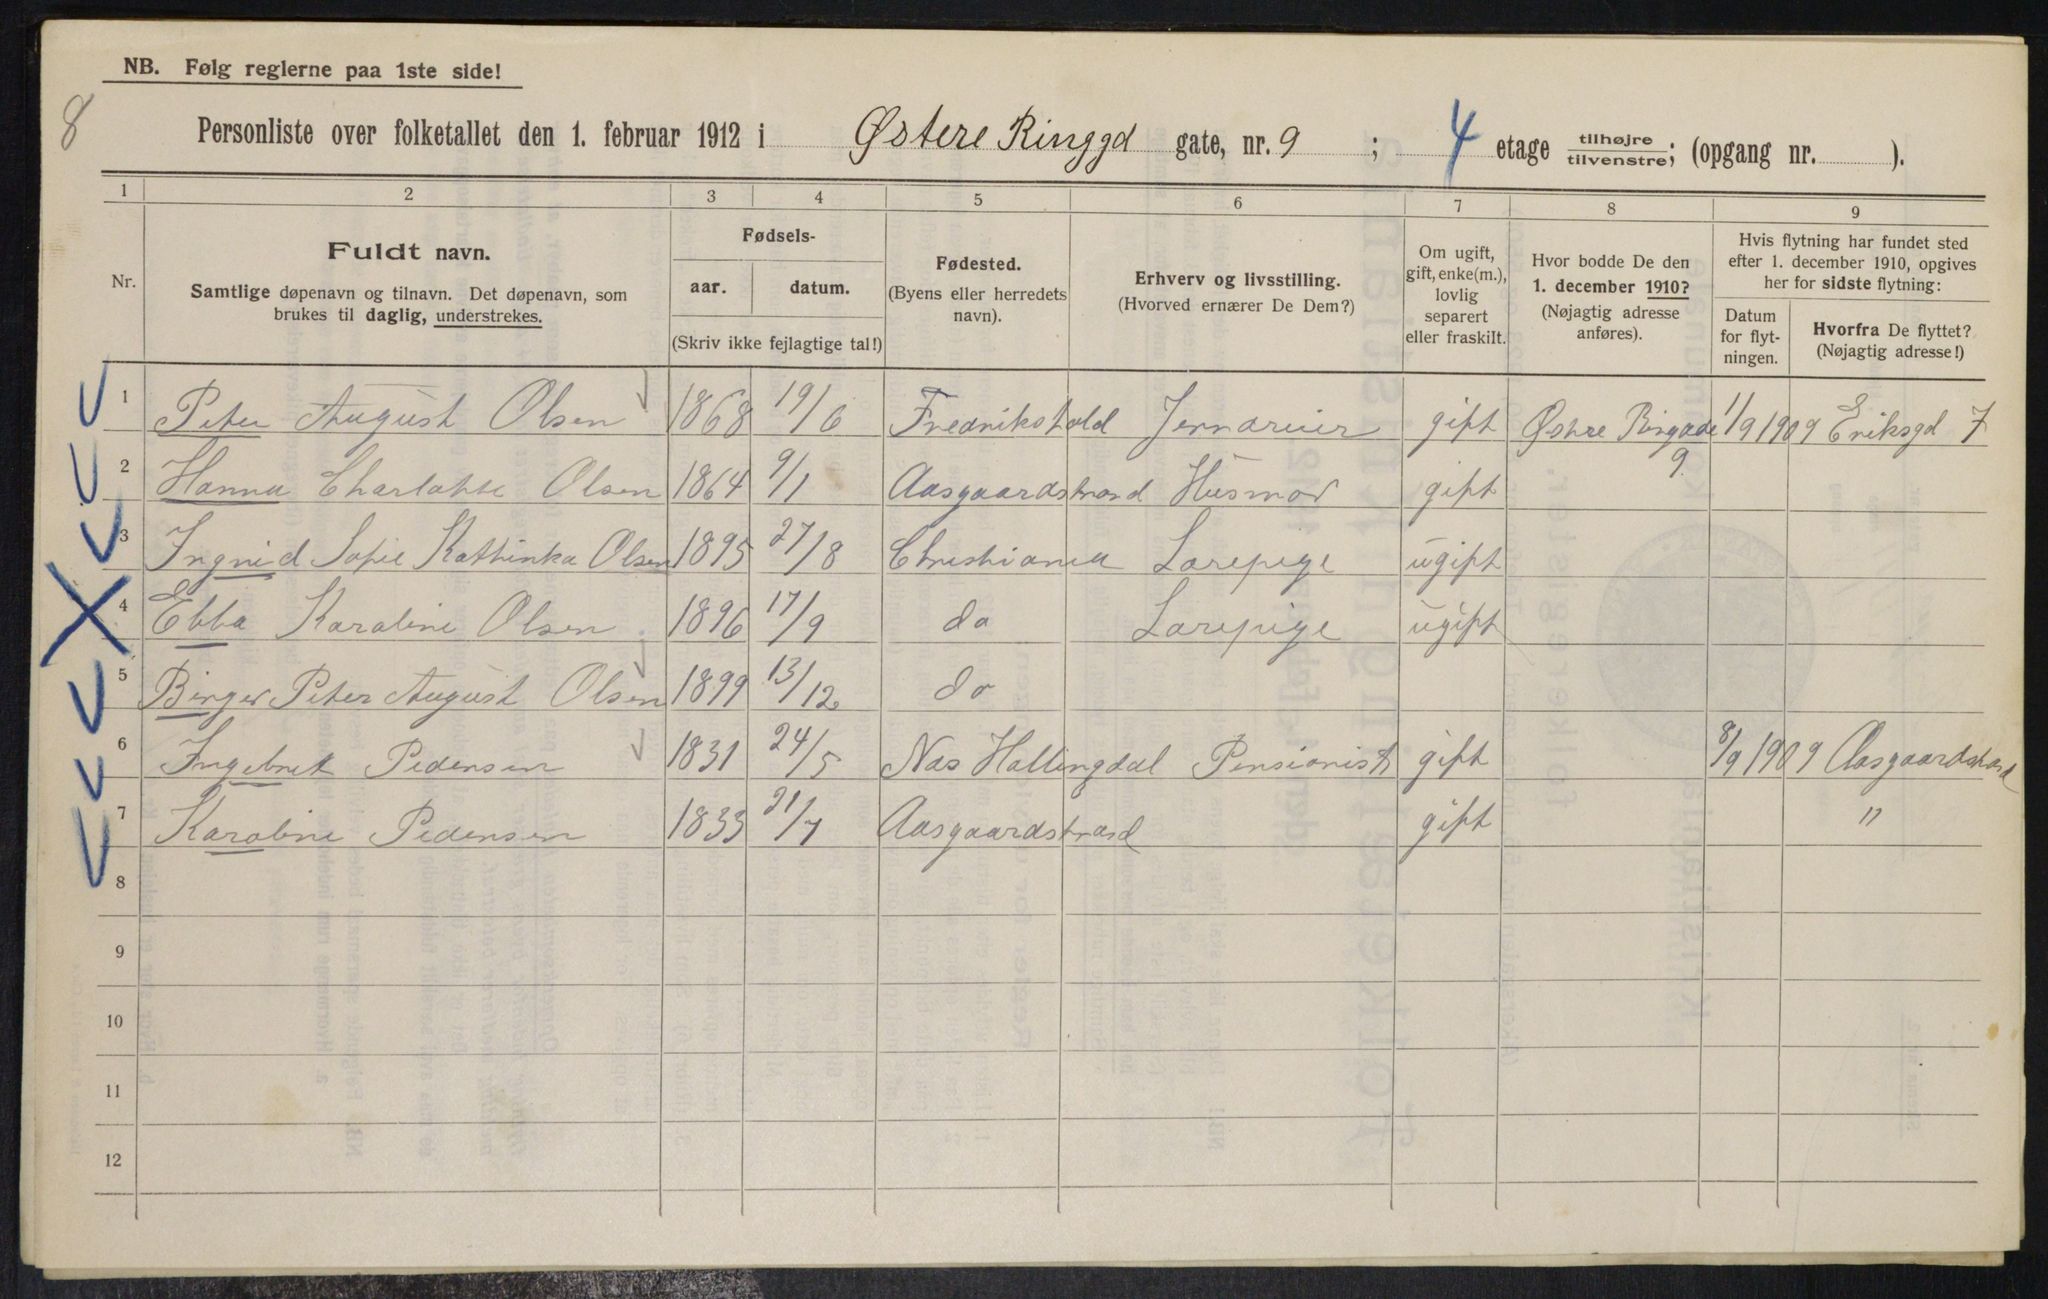 NB. Følg reglerne paa 1ste side!
8
Personliste over folketallet den 1. februar 1912 i Østere Ringgd gate, nr. 9 ; 4 etage tilhøjre/tilvenstre; (opgang nr. ).
1 2 3 4 5 6 7 8 9
Nr.
Fuldt navn.
Samtlige døpenavn og tilnavn. Det døpenavn, som
brukes til daglig, understrekes.
Fødsels-
aar. datum.
(Skriv ikke fejlagtige tal!)
Fødested.
(Byens eller herredets
navn).
Erhverv og livsstilling.
(Hvorved ernærer De Dem?)
Om ugift,
gift, enke(m.),
lovlig
separert
eller fraskilt.
Hvor bodde De den
1. december 1910?
(Nøjagtig adresse
anføres).
Hvis flytning har fundet sted
efter 1. december 1910, opgives
her for sidste flytning:
Datum
for flyt-
ningen.
Hvorfra De flyttet?
(Nøjagtig adresse!)
1 Peter August Olsen 1868 19/6 Fredrikshald gift Østre Ringgade 9 1/9 1909 Eriksgd 7
2 Hanna Charlotte Olsen 1864 9/1 Aasgaardstrand Husmor gift
3 Ingrid Sofie Kathinka Olsen 1895 27/8 Christiania Lærepige ugift
4 Ebba Karoline Olsen 1896 17/9 do Lærepige ugift
5 Birger Peter August Olsen 1899 13/12 do
6 Ingebret Pedersen 1831 24/5 Nas Hallingdal Pensionist gift 8/9 1909 Aasgaardstrand
7 Karoline Pedersen 1833 21/7 Aasgaardstrand gift "
8
9
10
11
12